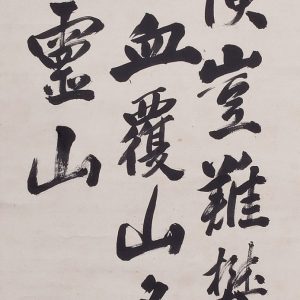 豈難攀
血覆山
靈山